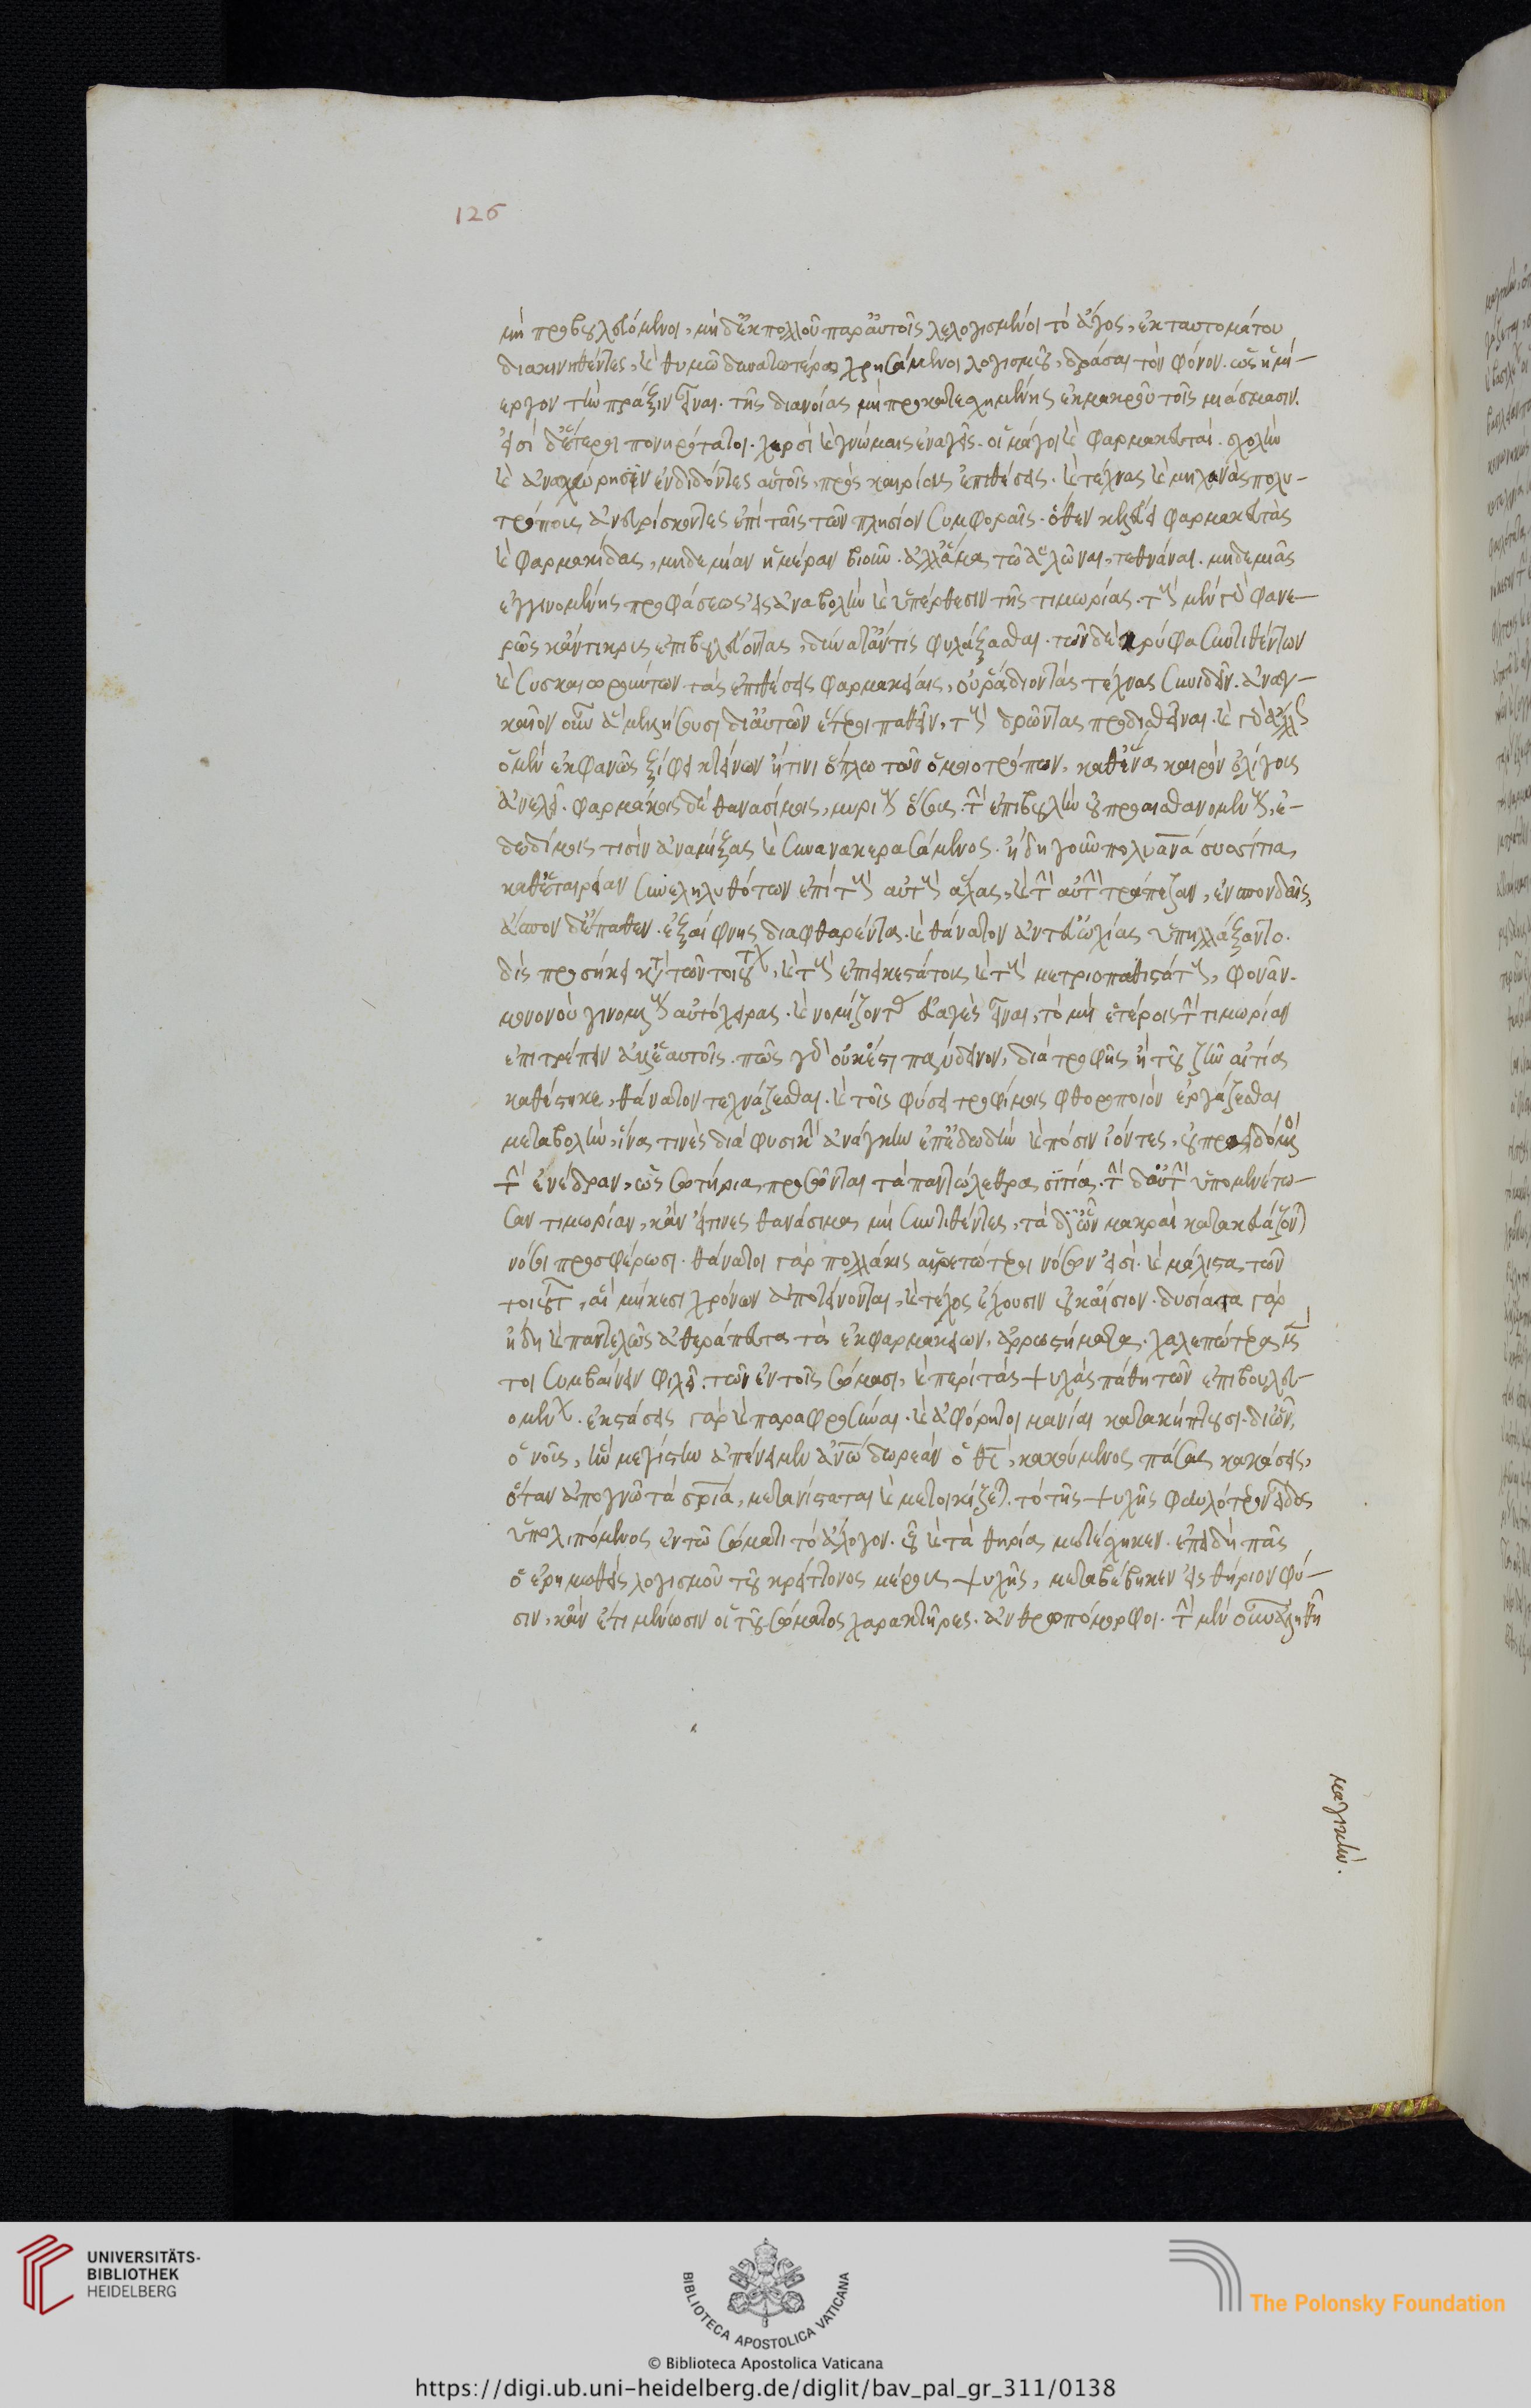 126
μὴ προβουλευόμενοι, μὴ δ' ἐκ πολλοῦ παρ' αὐτοῖς λελογισμένοι τὸ ἄγος, ἐκ ταυτομάτου
διακινηθέντες, καὶ θυμῶ δυνατωτέρω χρησάμενοι λογισμοῦ, δράσαι τὸν φόνον. ὡς ἡμί-
εργον τὴν πράξιν εἶναι. τῆς διανοίας μὴ προκατεσχημένης ἐκ μακροῦ τοῖς μιάσμασιν.
εἰσὶ δ' ἕτεροι πονηρότατοι. χερσὶ καὶ γνώμαις ἐναγεῖς. οἱ μάγοι καὶ φαρμακευταί. σχολὴν
καὶ ἀναχώρησιν ἐνδιδόντες αὑτοῖς, πρὸς καιρίους ἐπιθέσεις. καὶ τέχνας καὶ μηχανὰς πολυ-
τρόπους ἀνευρίσκοντες ἐπὶ ταῖς τῶν πλησίον συμφοραῖς. ὅθεν κελεύει φαρμακευτὰς
καὶ φαρμακίδας, μηδεμίαν ἡμέραν βιοῦν. ἀλλ' ἅμα τῶ ἁλῶναι, τεθνάναι. μηδεμιᾶς
ἐγγινομένης προφάσεως εἰς ἀναβολὴν καὶ ὑπέρθεσιν τῆς τιμωρίας. τοὺς μὲν γὰρ φανε-
ρῶς κἄντικρυς ἐπιβουλεύοντας, δύναιτ' ἄν τις φυλάξασθαι. τῶν δὲ κρύφα συντιθέντων
καὶ συσκαιωρούντων τὰς ἐπιθέσεις φαρμακείαις, οὐ ῥάδιον τὰς τέχνας συνιδεῖν. ἀναγ-
καῖον οὖν ἃ μελλήσουσι δι' αὐτῶν ἕτεροι παθεῖν, τοὺς δρῶντας προδιαθεῖναι. καὶ γὰρ ἄλλως
ὁ μὲν ἐκφανῶς ξίφει κτείνων ἤ τινι ὅπλω τῶν ὁμοιοτρόπων, καθ' ἕνα καιρὸν ὀλίγους
ἀνελεῖ. φαρμάκοις δὲ θανασίμοις, μυρίους ὅσους τὴν ἐπιβουλὴν οὐ προαισθανομένους, ἐ-
δωδίμοις τισὶν ἀναμίξας καὶ συνανακερασάμενος. ἤδη γοῦν πολυάνα συσσίτια,
καθ' ἑταιρείαν συνεληλυθότων ἐπὶ τοὺς αὐτοὺς ἅλας, καὶ τὴν αὐτὴν τράπεζαν, ἐν σπονδαῖς,
ἄσπονδ' ἔπαθεν. ἐξαίφνης διαφθαρέντα. καὶ θάνατον ἀντ' εὐωχίας ὑπηλλάξαντο.
διὸ προσήκει κατὰ τῶν τοιούτων, καὶ τοὺς ἐπιεικεστάτους καὶ τοὺς μετριοπαθεστάτους, φονᾶν.
μονονοὺ γινομένους αὐτόχειρας. καὶ νομίζοντας εὐαγὲς εἶναι, τὸ μὴ ἑτέροις τὴν τιμωρίαν
ἐπιτρέπειν ἀλλ' ἑαυτοῖς. πῶς γὰρ οὐκ ἔστι παγχάλεπον, διὰ τροφῆς ἣ τοῦ ζῆν αἰτία
καθέστηκε, θάνατον τεχνάζεσθαι. καὶ τοῖς φύσει τροφίμοις φθοροποιὸν ἐργάζεσθαι
μεταβολήν, ἵνα τινὲς διὰ φυσικὴν ἀνάγκην ἐπ' ἐδωδὴν καὶ πόσιν ἰόντες, οὐ προειδόμενοι
τὴν ἐνέδραν, ὡς σωτήρια προσῶνται τὰ πανώλεθρα σιτία. τὴν δ' αὐτὴν ὑπομενέτω-
σαν τιμωρίαν, κἂν εἴ τινες θανάσιμα μὴ συντιθέντες, τὰ δι' ὧν μακραὶ κατασκευάζονται
νόσοι προσφέρωσι. θάνατοι γὰρ πολλάκις αἱρετώτεροι νόσων εἰσὶ. καὶ μάλιστα τῶν
τοιούτων, αἳ μήκεσι χρόνων ἀποτείνονται, καὶ τέλος ἔχουσιν οὐκ αἴσιον. δυσίατα γὰρ
ἤδη καὶ παντελῶς ἀθεράπευτα τὰ ἐκ φαρμακειῶν. ἀρρωστήματα. χαλεπώτερα μέν
τοι συμβαίνειν φιλεῖ τῶν ἐν τοῖς σώμασι, καὶ περὶ τὰς ψυχὰς πάθη τῶν ἐπιβουλευ-
ομένων. ἐκστάσεις γὰρ καὶ παραφροσύναι. καὶ ἀφόρητοι μανίαι κατασκήπτουσι. δι' ὧν,
ὁ νοῦς, ἣν μεγίστην ἀπένειμεν ἀνω δωρεὰν ὁ θς, κακούμενος πάσας κακώσεις,
ὅταν ἀπογνῶ τὰ σρία, μετανίσταται καὶ μετοικίζεται. τὸ τῆς ψυχῆς φαυλότερον εἶδος
ὑπολιπόμενος ἐν τῶ σώματι τὸ ἄλογον. οὗ καὶ τὰ θηρία μετέσχηκεν. ἐπειδὴ πᾶς
ὁ ἐρημωθεὶς λογισμοῦ τοῦ κρείττονος μέρους ψυχῆς, μεταβέβηκεν εἰς θηρίου φύ-
σιν, κἂν ἔτι μένωσιν οἱ τοῦ σώματος χαρακτῆρες. ἀνθρωπόμορφοι. τὴν μὲν οὖν ἀληθῆ
μαγικὴν.
UNIVERSITÄTS-
BIBLIOTHEK
HEIDELBERG
BIBLIOTECA APOSTOLICA VATICANA
The Polonsky Foundation
© Biblioteca Apostolica Vaticana
https://digi.ub.uni-heidelberg.de/diglit/bav_pal_gr_311/0138